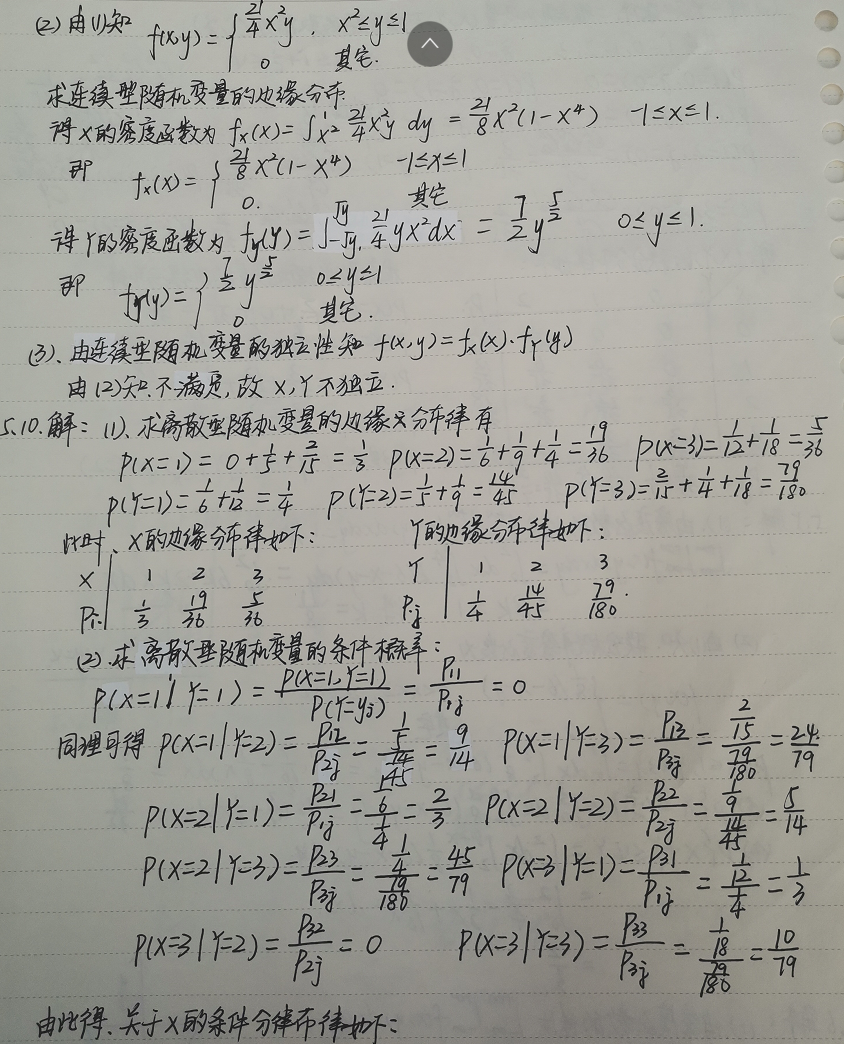 (2) 由(1)知 f(x,y) = { 21/4 x²y , x²≤y≤1
0 其它.
求连续型随机变量的边缘分布.
得X的密度函数为 fx(x) = ∫x²^1 21/4 x²y dy = 21/8 x²(1-x⁴) -1≤x≤1.
即 fx(x) = { 21/8 x²(1-x⁴) -1≤x≤1
0. 其它
得Y的密度函数为 fy(y) = ∫-√y^√y 21/4 yx²dx = 7/2 y^(5/2) 0≤y≤1.
即 fy(y) = { 7/2 y^(5/2) 0≤y≤1
0 其它.
(3)、由连续型随机变量的独立性知 f(x,y) = fx(x)·fY(y)
由(2)知.不满足,故X,Y不独立.
5.10.解: (1)、求离散型随机变量的边缘分布律有
P(X=1) = 0+1/5+2/15 = 1/3 P(X=2) = 1/6+1/9+1/4 = 19/36 P(X=3) = 1/12+1/18 = 5/36
P(Y=1) = 1/6+1/12 = 1/4 P(Y=2) = 1/5+1/9 = 14/45 P(Y=3) = 2/15+1/4+1/18 = 79/180
此时、X的边缘分布律如下: Y的边缘分布律如下:
X | 1 2 3 Y | 1 2 3
Pi. | 1/3 19/36 5/36 P.j | 1/4 14/45 79/180.
(2).求离散型随机变量的条件概率:
P(X=1|Y=1) = P(X=1,Y=1)/P(Y=yj) = P11/P1j = 0
同理可得 P(X=1|Y=2) = P12/P2j = (1/5)/(14/45) = 9/14 P(X=1|Y=3) = P13/P3j = (2/15)/(79/180) = 24/79
P(X=2|Y=1) = P21/P1j = (1/6)/(1/4) = 2/3 P(X=2|Y=2) = P22/P2j = (1/9)/(14/45) = 5/14
P(X=2|Y=3) = P23/P3j = (1/4)/(79/180) = 45/79 P(X=3|Y=1) = P31/P1j = (1/12)/(1/4) = 1/3
P(X=3|Y=2) = P32/P2j = 0 P(X=3|Y=3) = P33/P3j = (1/18)/(79/180) = 10/79
由此得、关于X的条件分律布律如下: